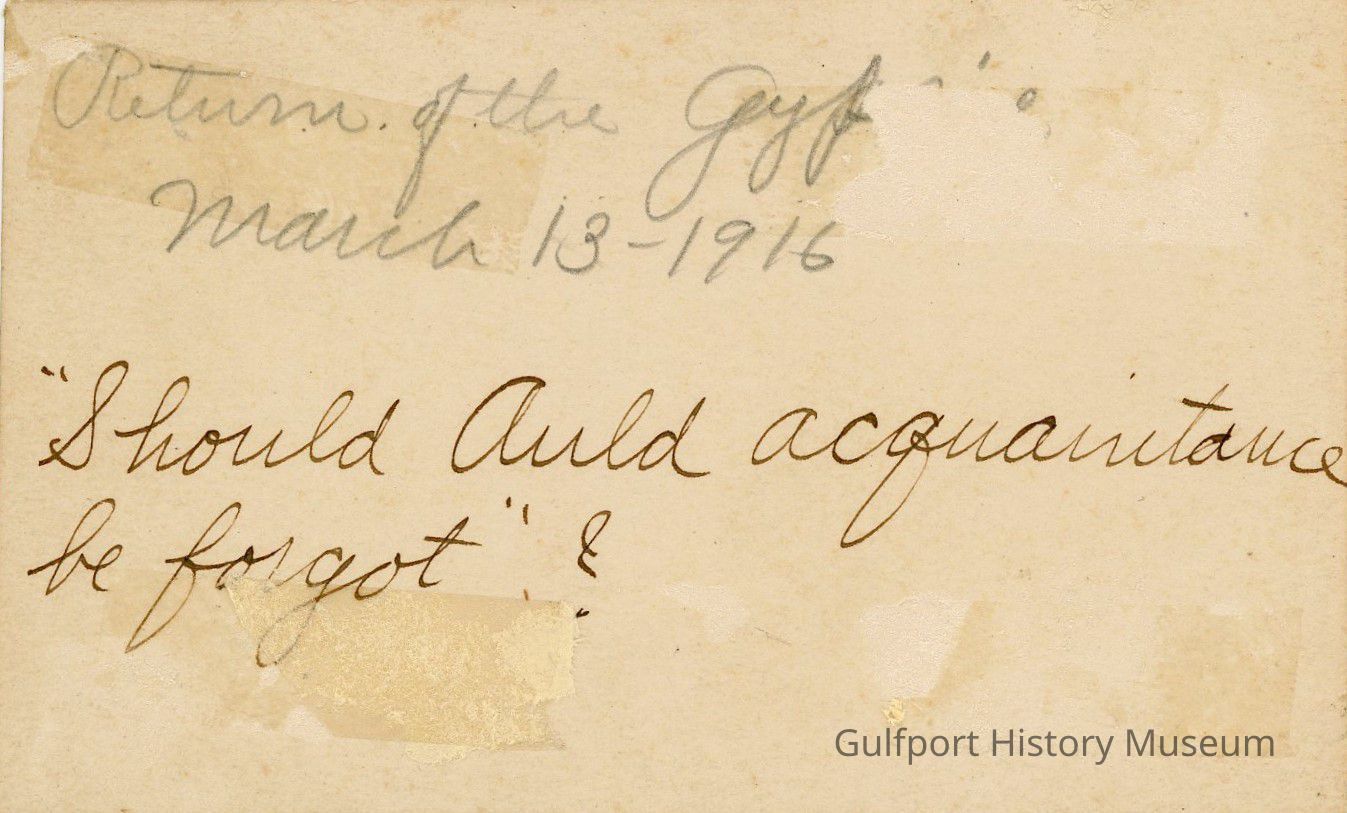 Return of the
March 13-1916
"Should Auld acquaintance
be forgot"?
Gulfport History Museum